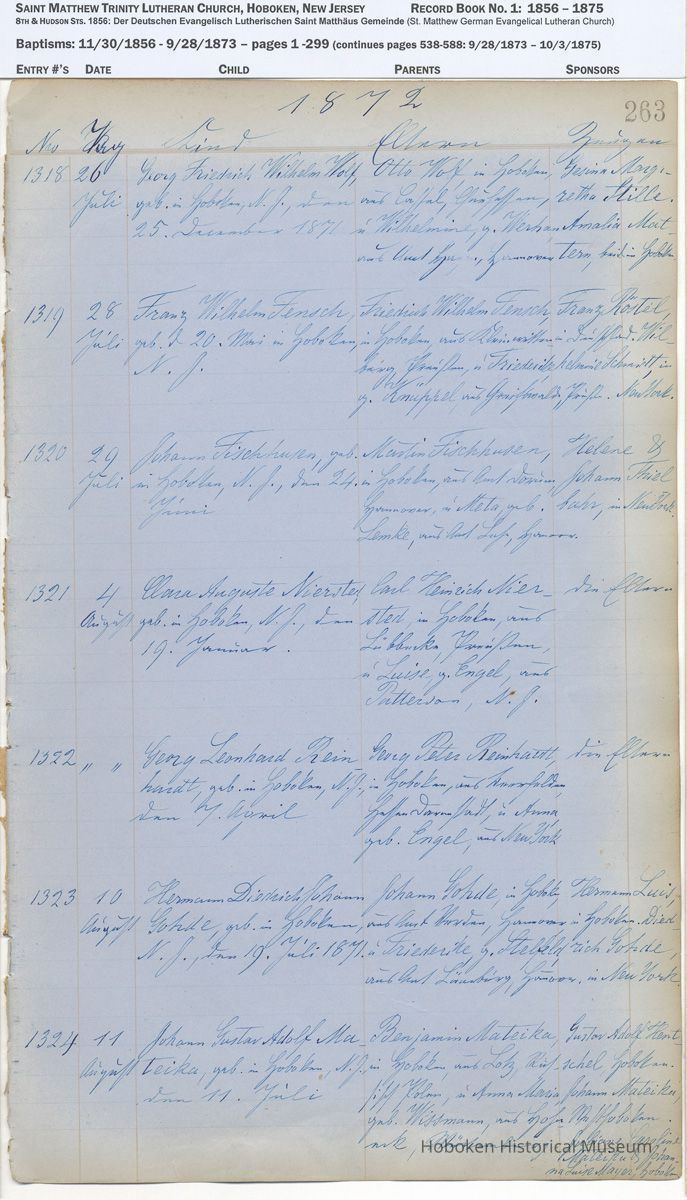 SAINT MATTHEW TRINITY LUTHERAN CHURCH, HOBOKEN, NEW JERSEY RECORD BOOK NO. 1: 1856 – 1875
8TH & HUDSON STS. 1856: Der Deutschen Evangelisch Lutherischen Saint Matthäus Gemeinde (St. Matthew German Evangelical Lutheran Church)
Baptisms: 11/30/1856 - 9/28/1873 – pages 1 -299 (continues pages 538-588: 9/28/1873 – 10/3/1875)
ENTRY #'S DATE CHILD PARENTS SPONSORS
1872 263
No Tag Kind Eltern Zeugen
1318 26 Georg Friedrich Wilhelm Wolf, Otto Wolf, in Hoboken, Gesina Marga-
Juli geb. in Hoboken, N. J., den aus Cassel, retha Stille.
25. December 1871 u Wilhelmine, g. Amalia Mat-
aus Amt Hannover tern, beid. in Hoboken
1319 28 Franz Wilhelm Fensch, Friedrich Wilhelm Fensch Franz Rötel,
Juli geb. d 20. Mai in Hoboken, in Hoboken, aus Wil-
N. J. Preußen, u Friederike helmine Schmidt, in
g. Knüppel, aus Greifswald, New York.
1320 29 Johann Fischhusen, geb. Martin Fischhusen, Helene &
Juli in Hoboken, N. J., den 24. in Hoboken, aus Amt Johann Thiel
Juni Hannover, u Meta, geb. bahr, in New York.
Lemke, aus Amt
1321 4 Clara Auguste Niersted, Carl Heinrich Nier- die Eltern
August geb. in Hoboken, N. J., den sted, in Hoboken, aus
19. Januar. Lübbecke, Preußen,
u Luise, g. Engel, aus
Patterson, N. J.
1322 " " Georg Leonhard Rein- Georg Peter Reinhardt, die Eltern
hardt, geb. in Hoboken, N. J., in Hoboken, aus
den 7. April Hessen Darmstadt, u Anna
geb. Engel, aus New York
1323 10 Hermann Diedrich Johann Johann Gohde, in Hobok. Hermann Luis,
August Gohde, geb. in Hoboken, aus Amt Verden, Hannover in Hoboken. Died-
N. J., den 19. Juli 1871. u Friederike, g. rich Gohde,
aus Amt Lüneburg, in New York.
1324 11 Johann Gustav Adolf Ma- Benjamin Mateika, Gustav Adolf Hent-
August teika, geb. in Hoboken, N. J. in Hoboken, aus Lotz, Ruf- schel Hoboken.
den 11. Juli sisch Polen, u Anna Maria Johann Mateika,
geb. Wissmann, aus Hoboken.
Hoboken Historical Museum
na Luise Mayer, Hoboken